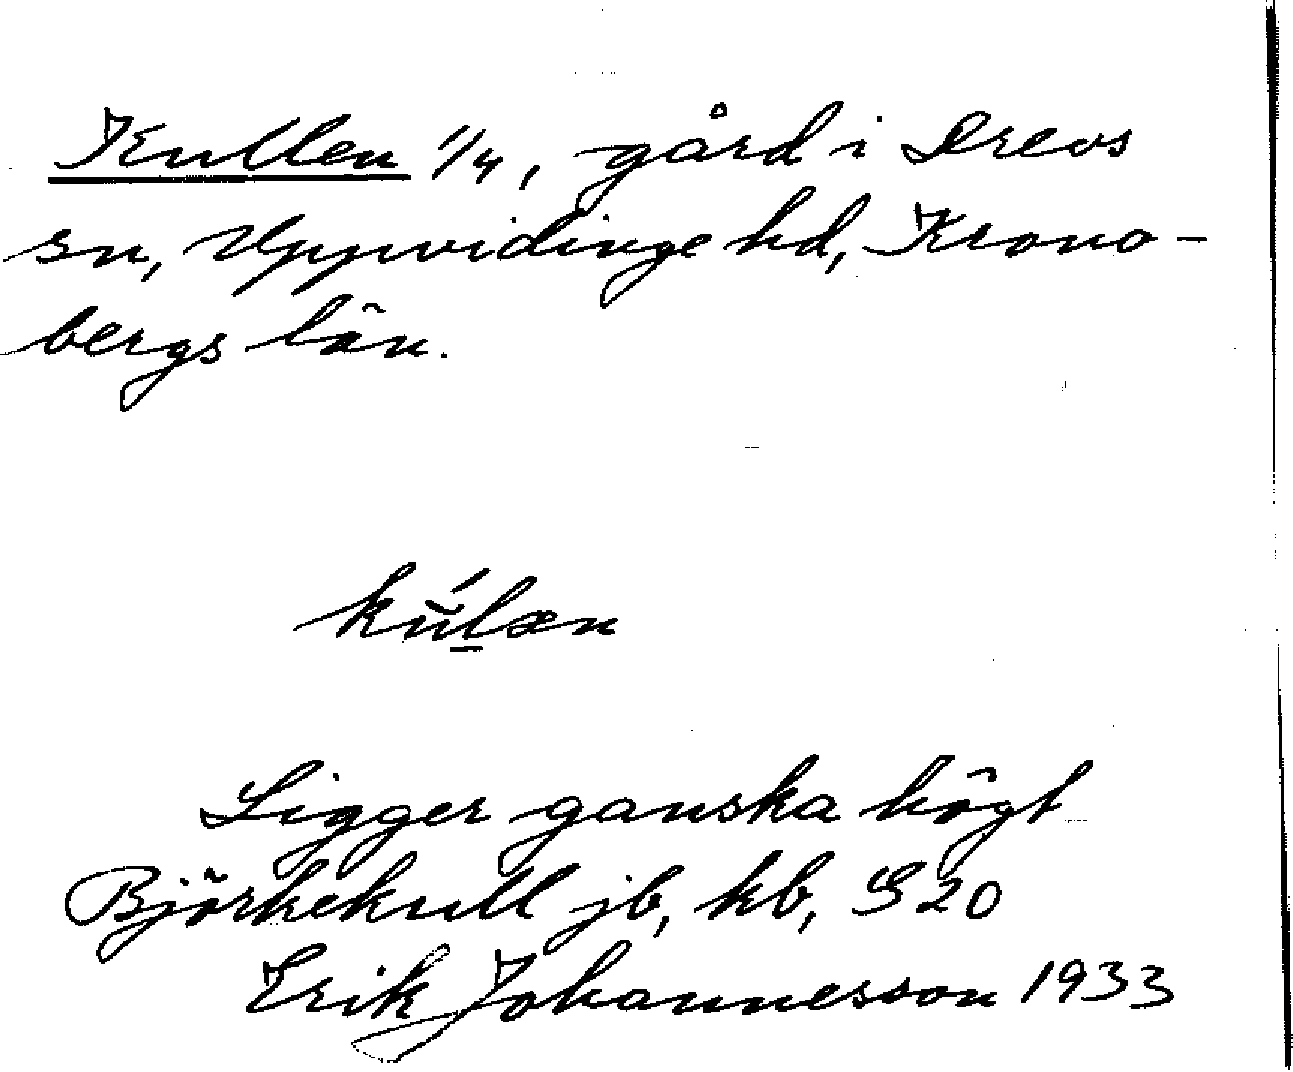 Kullen 1/4, gård i Drevs
sn, Uppvidinge hd, Krono-
bergs län.
kŭ́l̲æn
Ligger ganska högt
Björkekull jb, kb, S 20
Erik Johannesson 1933